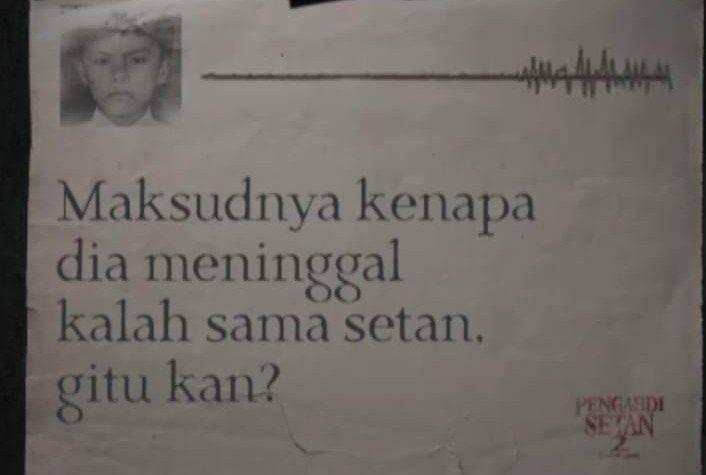 Maksudnya kenapa
dia meninggal
kalah sama setan.
gitu kan?
PENGABDI
SETAN
2